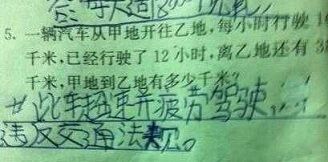 答：每天运180
5. 一辆汽车从甲地开往乙地,每小时行驶1
千米,已经行驶了12小时,离乙地还有3
千米,甲地到乙地有多少千米?
此车超速并疲劳驾驶,
违反交通法规。